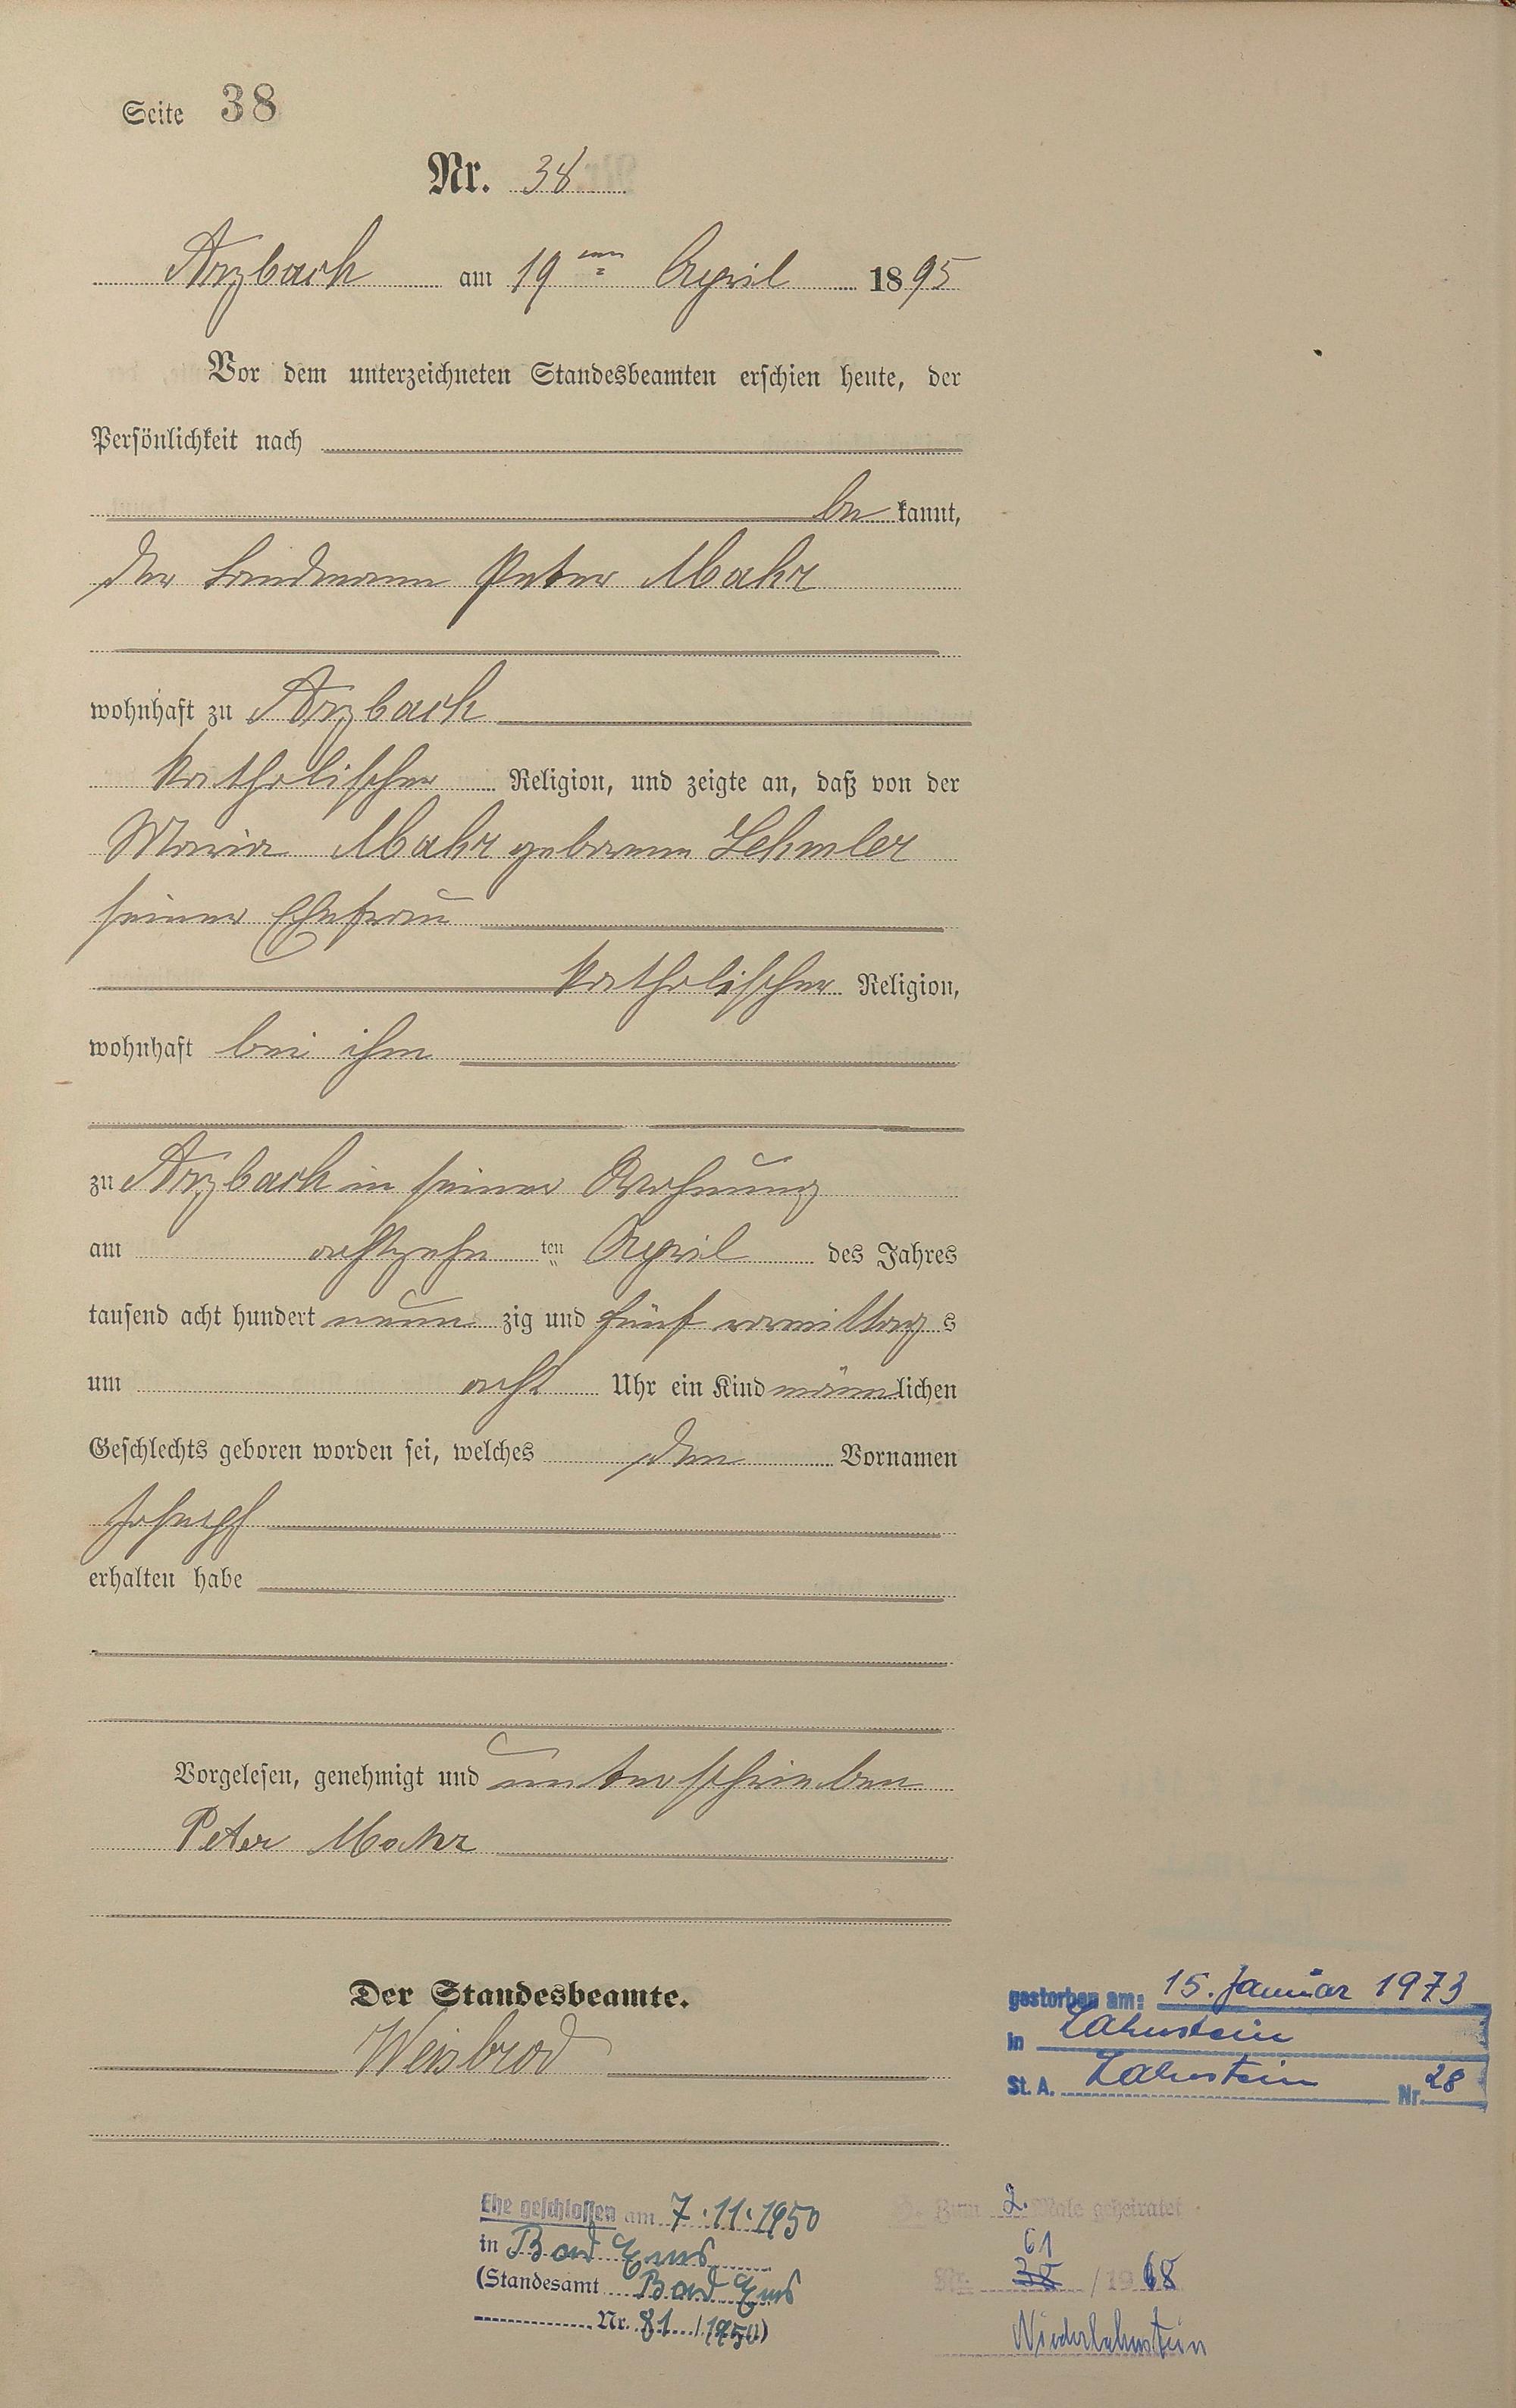 Seite 38
Nr. 38
Arzbach am 19ten April 1895
Vor dem unterzeichneten Standesbeamten erschien heute, der
Persönlichkeit nach
bekannt,
der Landmann Peter Mahr
wohnhaft zu Arzbach
katholischer Religion, und zeigte an, daß von der
Maria Mahr geborenen Lehmler
seiner Ehefrau
katholischer Religion,
wohnhaft bei ihm
zu Arzbach in seiner Wohnung
am achtzehnten April des Jahres
tausend acht hundert neunzig und fünf vormittags
um acht Uhr ein Kind männlichen
Geschlechts geboren worden sei, welches den Vornamen
Joseph
erhalten habe
Vorgelesen, genehmigt und unterschrieben
Peter Mahr
Der Standesbeamte.
Weisbrod
gestorben am: 15. Januar 1973
in Lahnstein
St. A. Lahnstein Nr. 28
Ehe geschlossen am 7.11.1950
in Bad Ems
(Standesamt Bad Ems
Nr. 81/1950)
Zum 2. Male geheiratet
61
Nr. 38/1968
Niederlahnstein